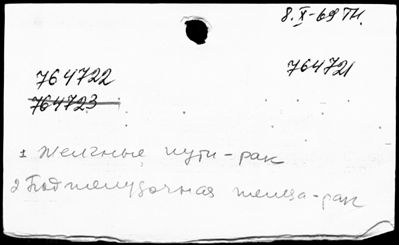 8.X-69 тн.
764722 764721
764723
1 Желчные пути-рак
2 Поджелудочная железа-рак